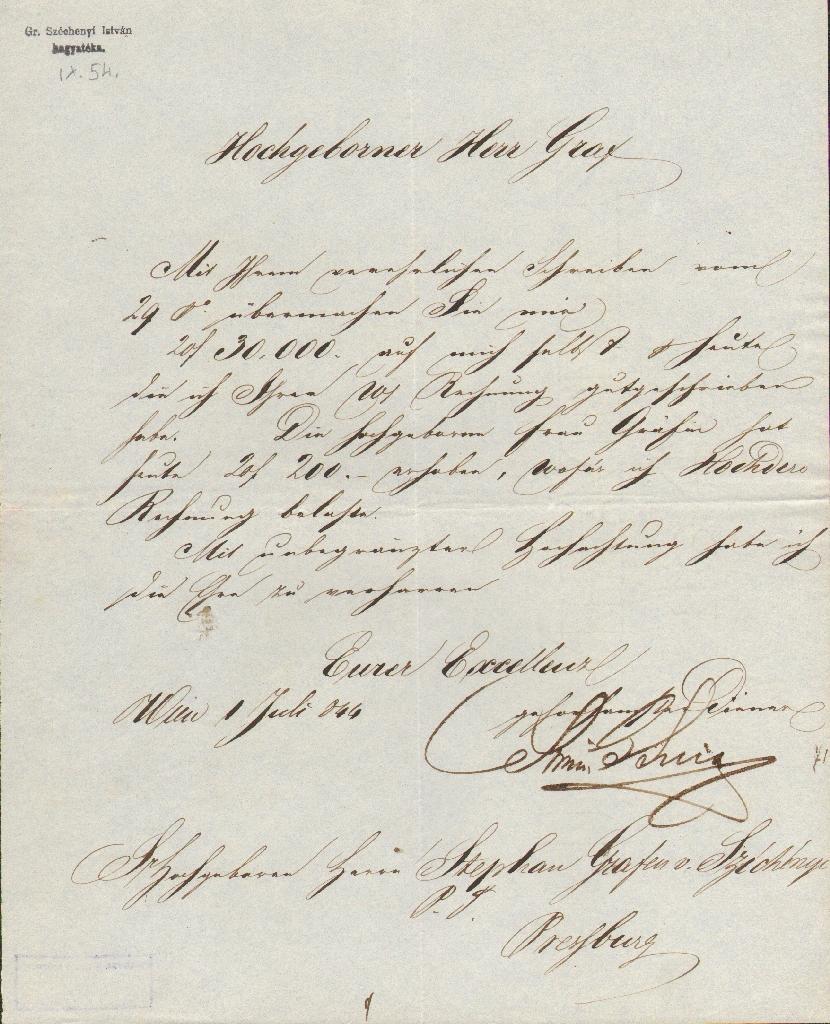 Gr. Széchenyi István
hagyatéka.
IX. 54.
Hochgeborner Herr Graf
Mit Ihrem verehrlichen Schreiben vom
29 d° übermachen Sie mir
30.000.- auf mich selbst & heute
die ich Ihrer Rechnung gutgeschrieben
habe. Die hochgeborne Frau Gräfin hat
heute 200.- erhoben, wofür ich Hochdero
Rechnung belaste.
Mit unbegränzter Hochachtung habe ich
die Ehre zu verharren
Eurer Excellenz
Wien 1 Juli 844
gehorsamster Diener
Sr Hochgeboren Herrn Stephan Grafen v. Széchényi
P. T.
Pressburg